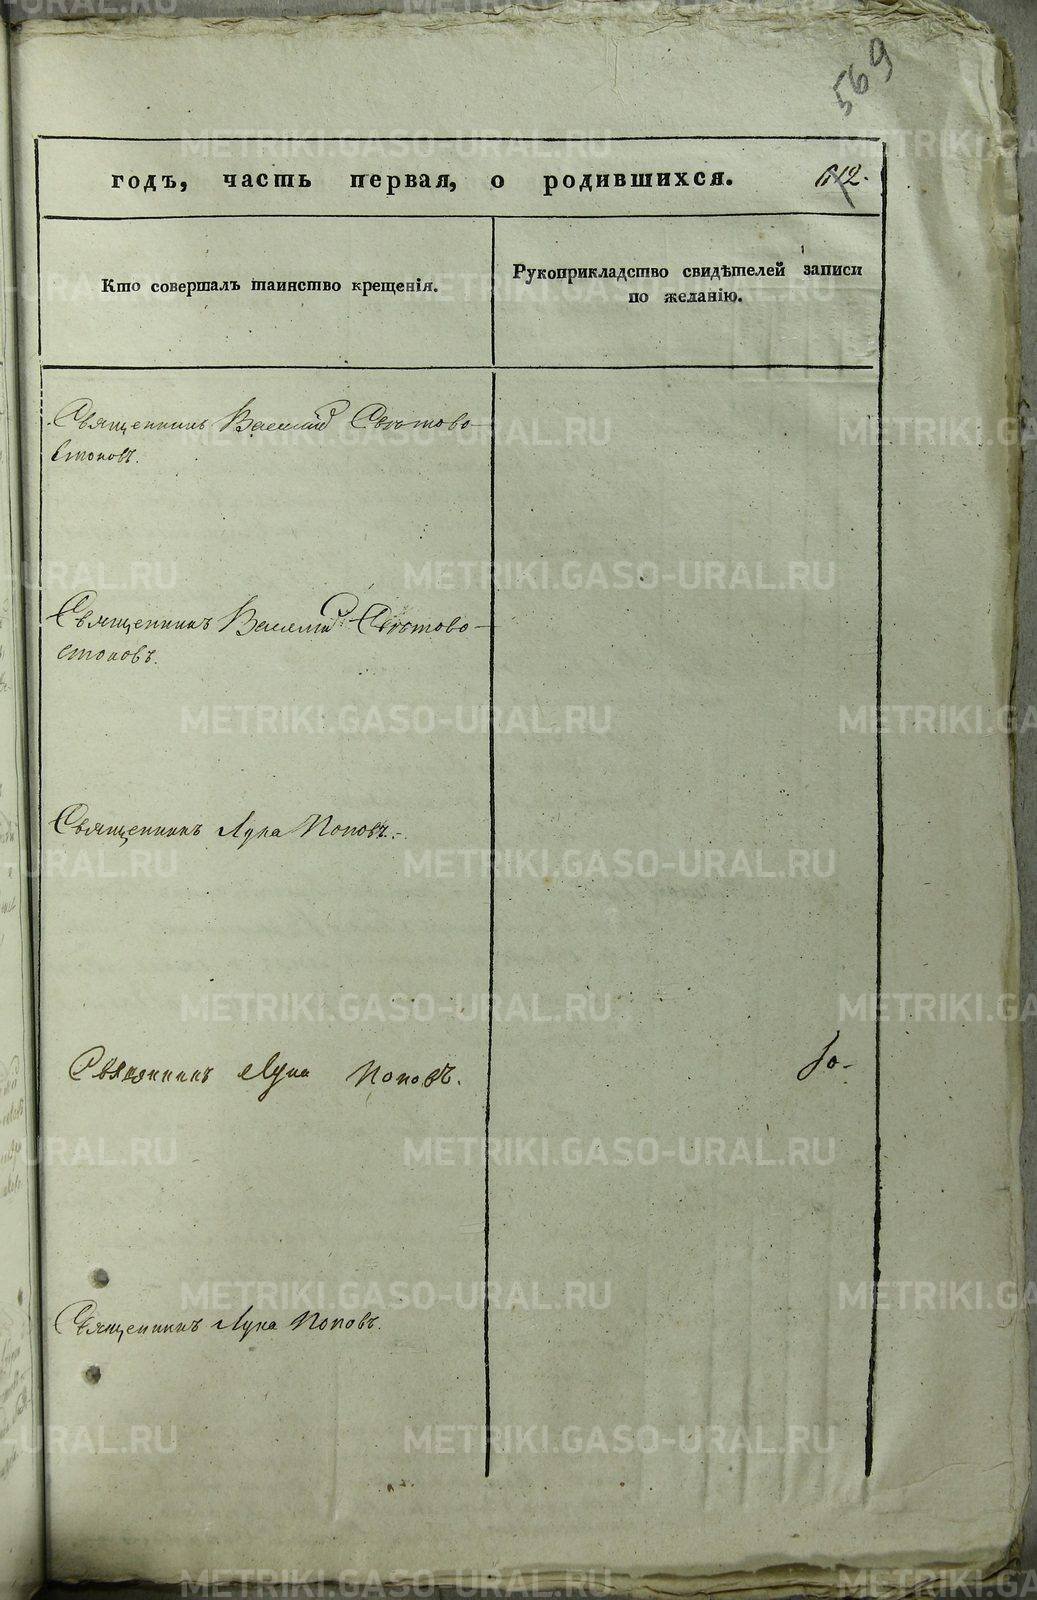 569
годъ, часть первая, о родившихся. 612.
Кто совершалъ таинство крещенія.
Рукоприкладство свидѣтелей записи
по желанію.
Священникъ Василій Свѣтово-
стоковъ.
Священникъ Василій Свѣтово-
стоковъ.
Священникъ Лука Поповъ.-
Священникъ Лука Поповъ.
Священникъ Лука Поповъ.
METRIKI.GASO-URAL.RU